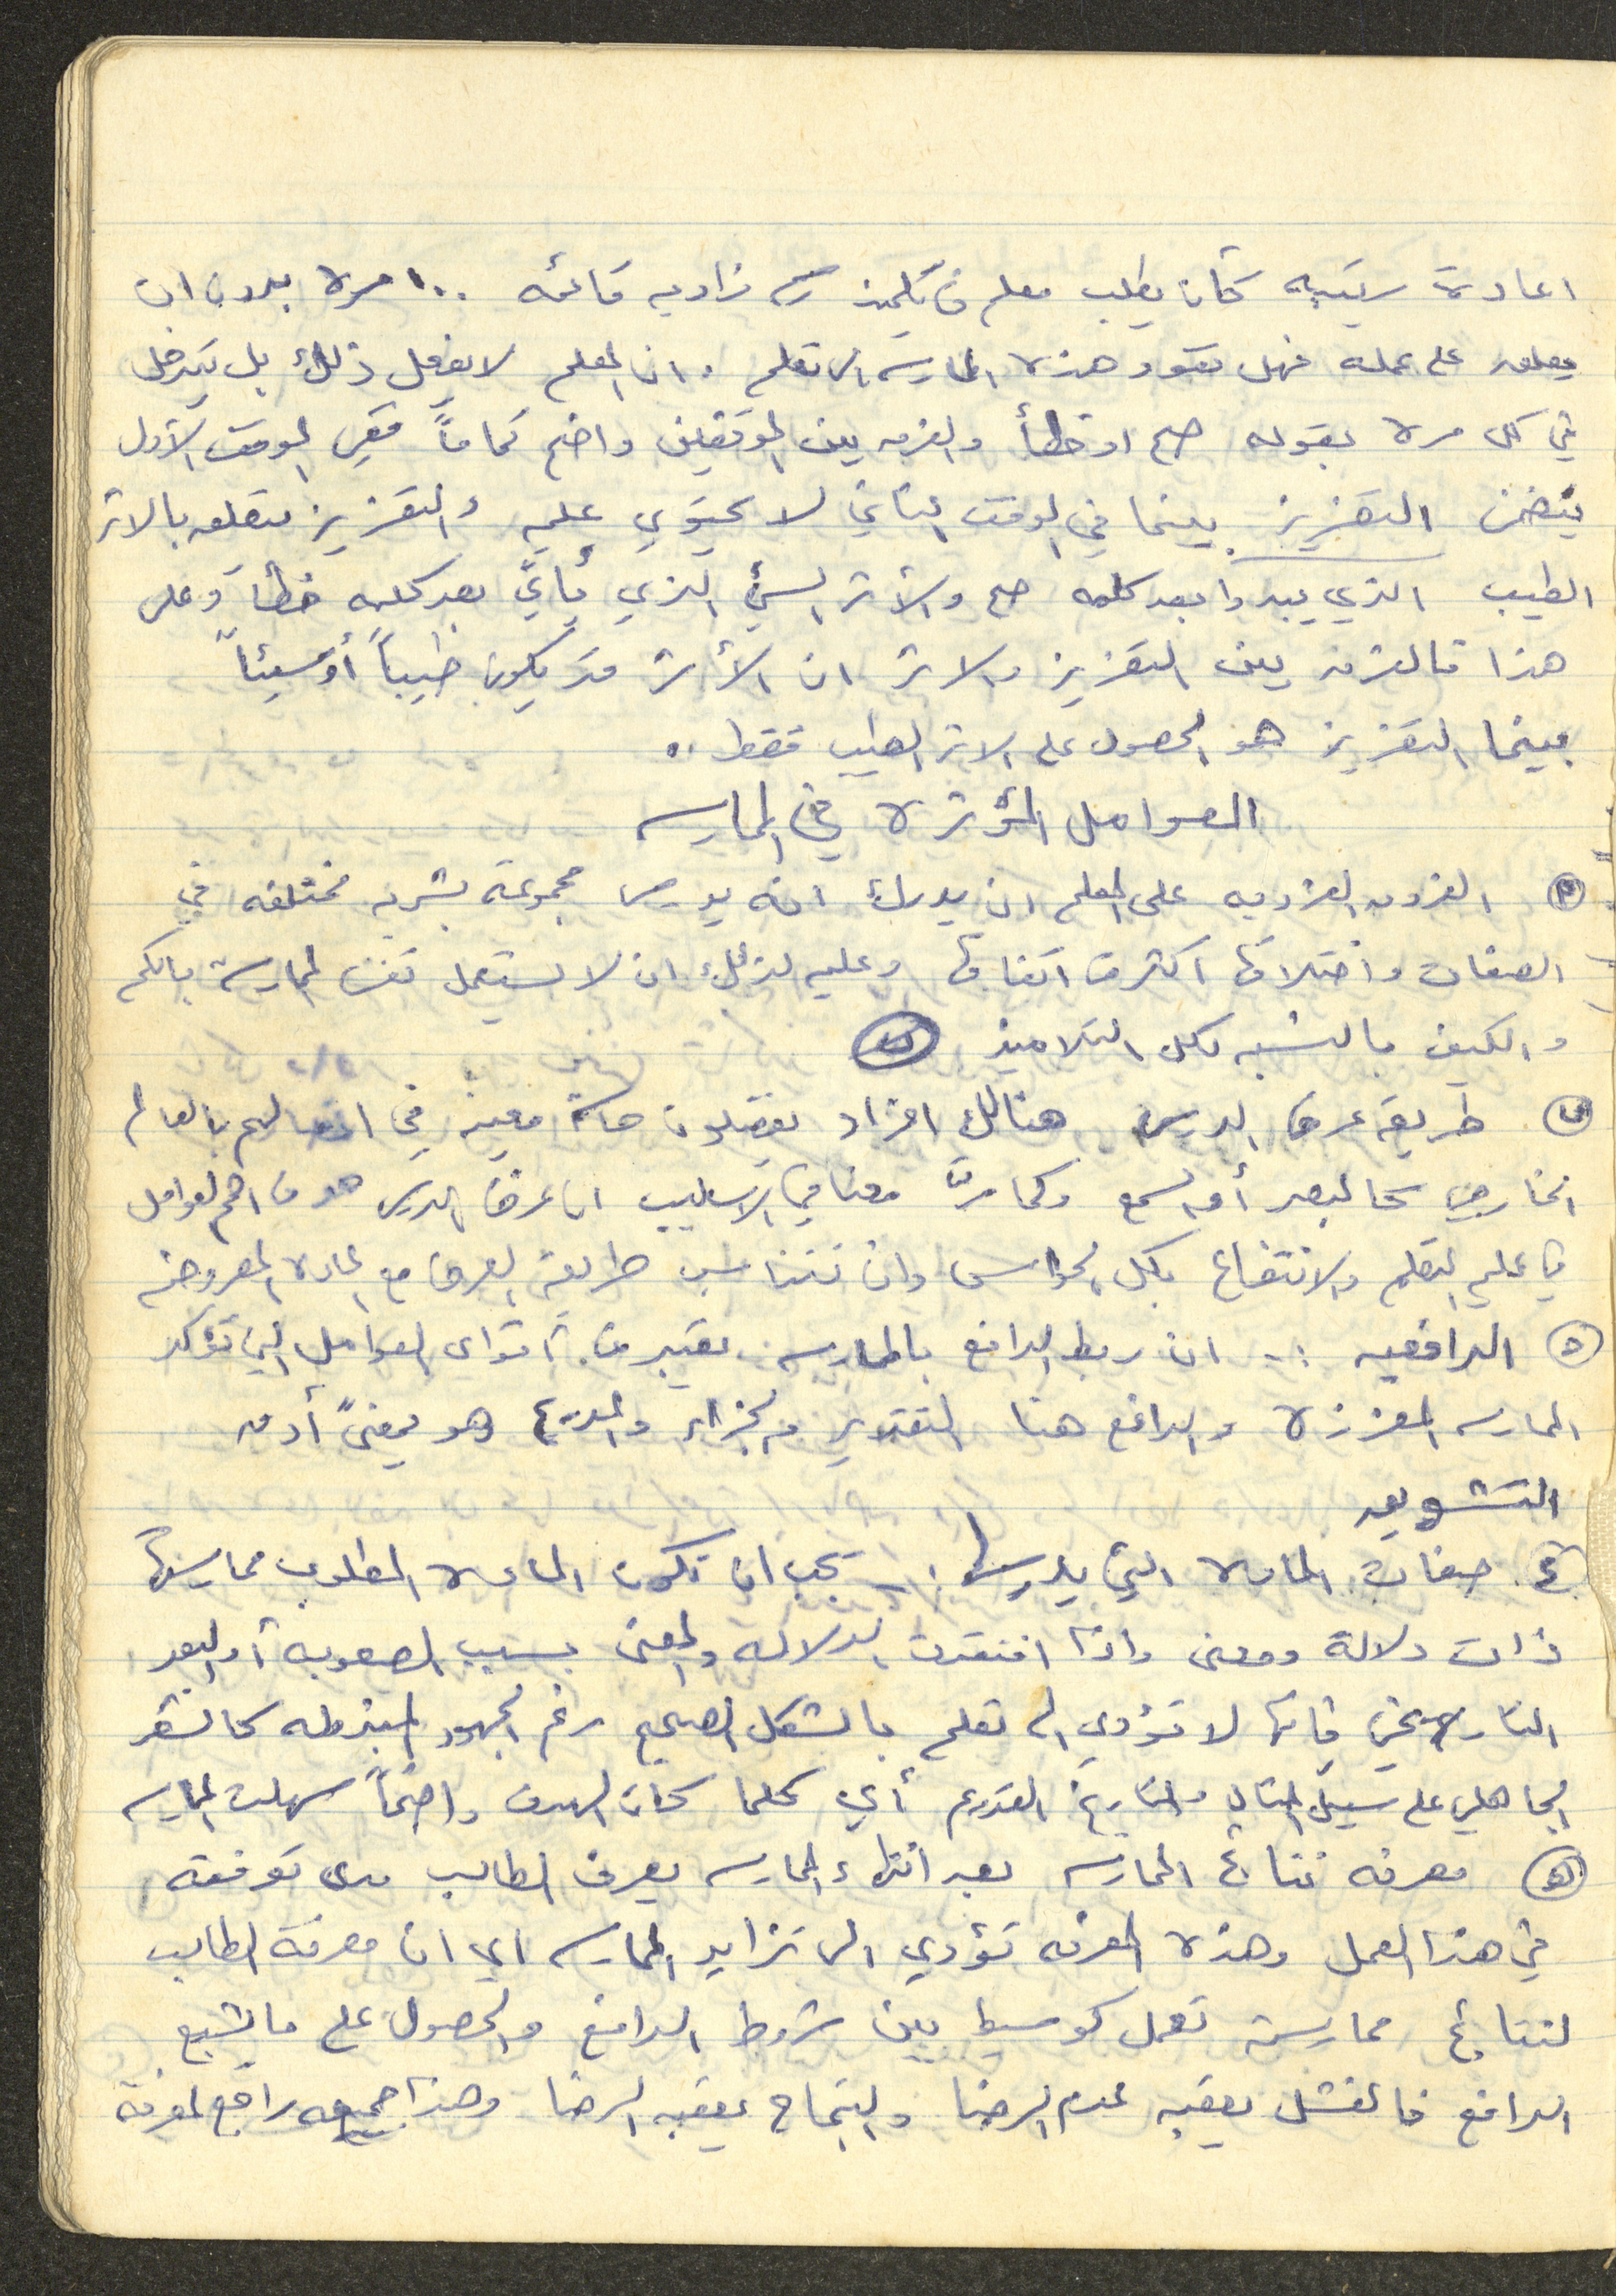 اعادة رتيبه كأن يطلب معلم من تلميذ رسم زاويه قائمه ١٠٠ مرة بدون ان
يعلق على عمله فهل تقود هذه الممارسه الى تعلم . ان المعلم لا يفعل ذلك بل يتدخل
في كل مرة بقوله صح او خطأ والفرق بين الموقفين واضح تماماً ففي الموقف الأول
يتضمن التعزيز بينما في الوقت الثاني لا يحتوي عليه والتعزيز يتعلق بالاثر
الطيب الذي يبدوا بعد كلمه صح والأثر السيئ الذي يأتي بعد كلمه خطأ وعلى
هذا فالفرق بين التعزيز والاثر ان الأثر قد يكون طيباً أو سيئاً
بينما التعزيز هو الحصول على الاثر الطيب فقط ..
العوامل المؤثرة في الممارسه
الفروق الفرديه على المعلم ان يدرك انه يدرس مجموعة بشريه مختلفه في
الصفات واختلافها اكثر من اتفاقها وعليه لذلك ان لا يستعمل نفس الممارسه بالكم
والكيف بالنسبه لكل التلاميذ
طريقه عرض الدرس هنالك افراد يفضلون حاسة معينه في اتصالهم بالعالم
الخارجي كالبصر أو السمع وكما مرّ معنا في الاساليب ان عرض الدرس هو من اهم العوامل
في عمليه التعلم والانتفاع بكل الحواس وان تتناسب طريقة العرض مع المادة المعروضه
الدافعيه :- ان ربط الدافع بالممارسه يعتبر من أقوى العوامل التي تؤكد
الممارسه المعززة والدافع هنا التقدير والجزاء والمديح وهو بمعنىً أدق
التشويق
٤ صفات الماده التي يدرسها :- يجب ان تكون الماده المطلوب ممارستها
ذات دلالة ومعنى واذا افتقدت الدلاله والمعنى بسبب الصعوبه أو البعد
التاريخي فانها لا تؤدي الى تعلم بالشكل الصحيح رغم الجهود المبذوله كالشعر
الجاهلي على سبيل المثال والتاريخ القديم أي كلما كان الهدف واضحاً سهلت الممارسه
معرفه نتائج الممارسه بعد انتهاء الممارسه يعرف الطالب مدى توفقه
في هذا العمل وهذه المعرفه تؤدي الى تزايد الممارسه اي ان معرفة الطالب
لنتائج ممارسته تعمل كوسيط بين شروط الدافع والحصول على ما يشبع
الدافع فالفشل يعقبه عدم الرضا والنجاح يعقبه الرضا وهذا جميعه راجع لمعرفة